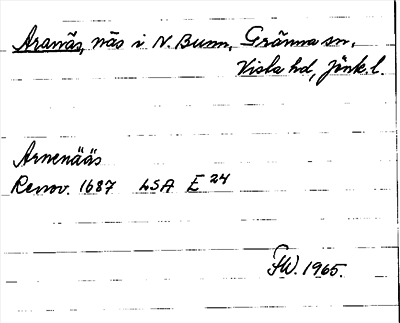 Aranäs, näs i N. Bunn, Gränna sn,
Vista hd, Jönk.l.
Arnenääs
Renov. 1687 LSA E 24
FW. 1965.